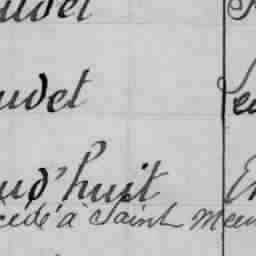 udet
udet
ud'huit
cédé à Saint Meu